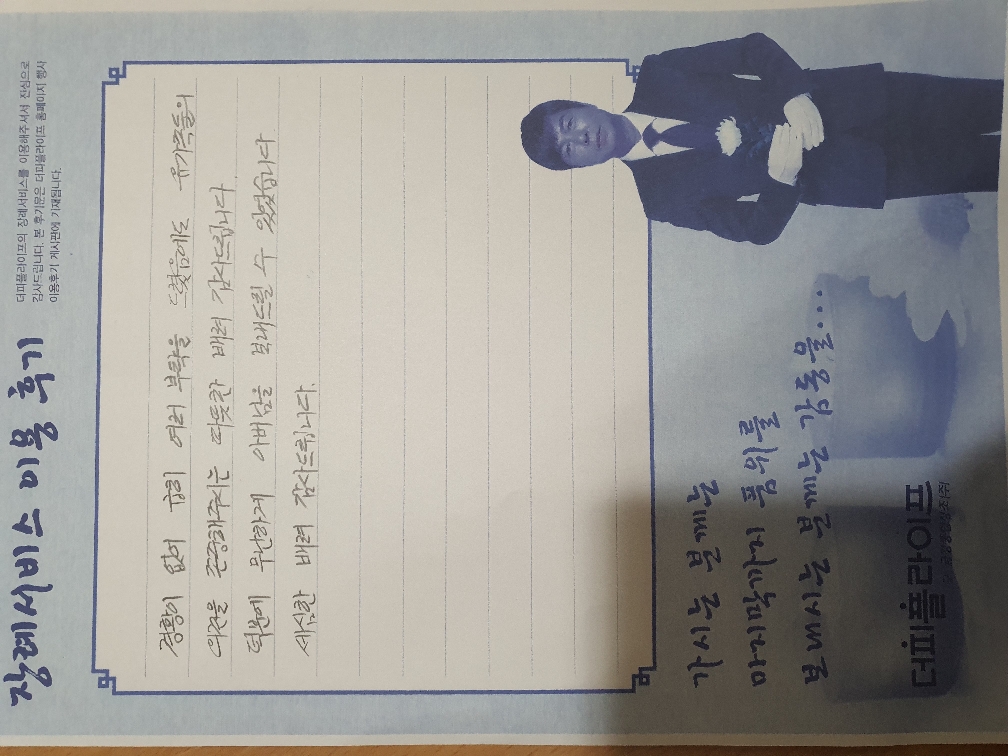 장례서비스 이용 후기
더피플라이프의 장례서비스를 이용해주셔서 진심으로
감사드립니다. 본 후기문은 더피플라이프 홈페이지 행사
이용후기 게시판에 기재됩니다.
경황이 없어 급히 여러 부탁을 드렸음에도 유가족들의
의견을 존중해주시는 따뜻한 배려 감사드립니다.
덕분에 무난하게 아버님을 보내드릴 수 있었습니다
세심한 배려 감사드립니다.
가시는 분께는
마지막까지 품위를
보내시는 분께는 감동을...
더피플라이프